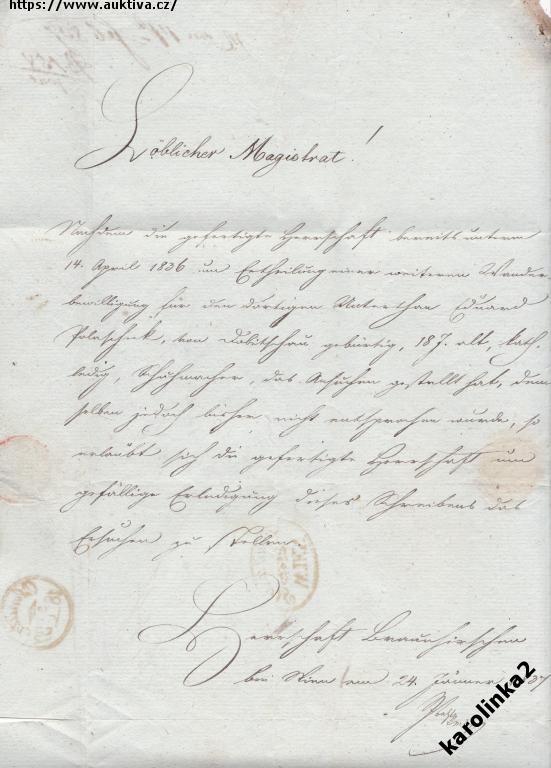 https://www.auktiva.cz/
Löblicher Magistrat!
Nachdem die gefertigte Herrschaft bereits unterm
14. April 1836 um Ertheilung einer weiteren Wander-
bewilligung für den dortigen Unterthan Eduard
Polaschek, von Dobitschau gebürtig, 18 J. alt, kath.
ledig, Schuhmacher, das Ansuchen gestellt hat, dem
selben jedoch bisher nicht entsprochen wurde, so
erlaubt sich die gefertigte Herrschaft um
gefällige Erledigung dieses Schreibens das
Ersuchen zu stellen.
Herrschaft Braunhirschen
bei Wien am 24. Jänner 37
karolinka2